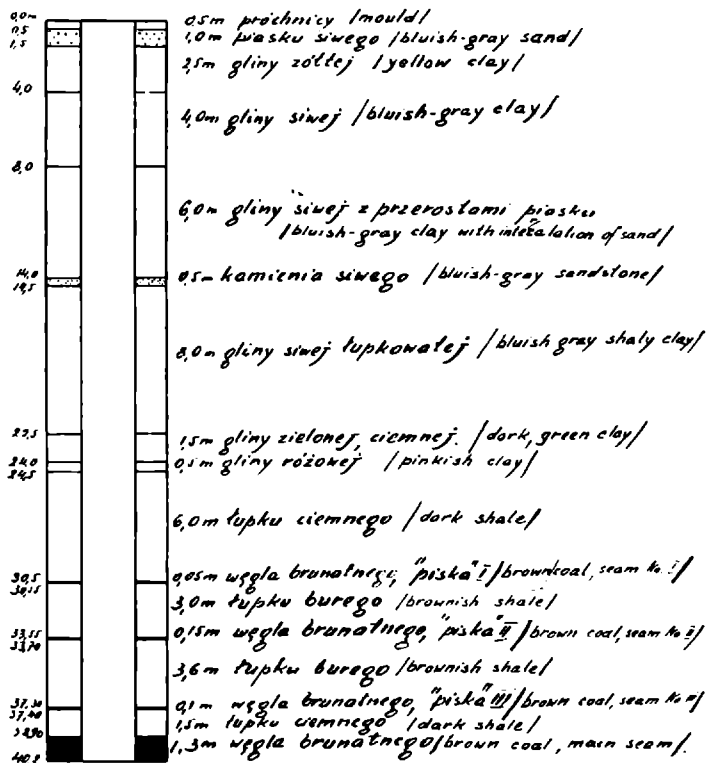 0,0m
0,5m próchnicy /mould/
0,5
1,0m piasku siwego /bluish-gray sand/
1,5
2,5m gliny żółtej /yellow clay/
4,0
4,0m gliny siwej /bluish-gray clay/
8,0
6,0m gliny siwej z przerostami piasku
/bluish-gray clay with intecalation of sand/
14,0
0,5m kamienia siwego /bluish-gray sandstone/
14,5
8,0m gliny siwej łupkowatej /bluish gray shaly clay/
22,5
1,5m gliny zielonej, ciemnej. /dark, green clay/
24,0
0,5m gliny różowej /pinkish clay/
24,5
6,0m łupku ciemnego /dark shale/
30,5
0,05m węgla brunatnego, "piska" I /brown coal, seam No. I/
30,55
3,0m łupku burego /brownish shale/
33,55
0,15m węgla brunatnego, "piska" II /brown coal, seam No II/
33,70
3,6m łupku burego /brownish shale/
37,30
0,1m węgla brunatnego, "piska" III /brown coal, seam No III/
37,40
1,5m łupku ciemnego /dark shale/
38,90
1,3m węgla brunatnego /brown coal, main seam/.
40,2